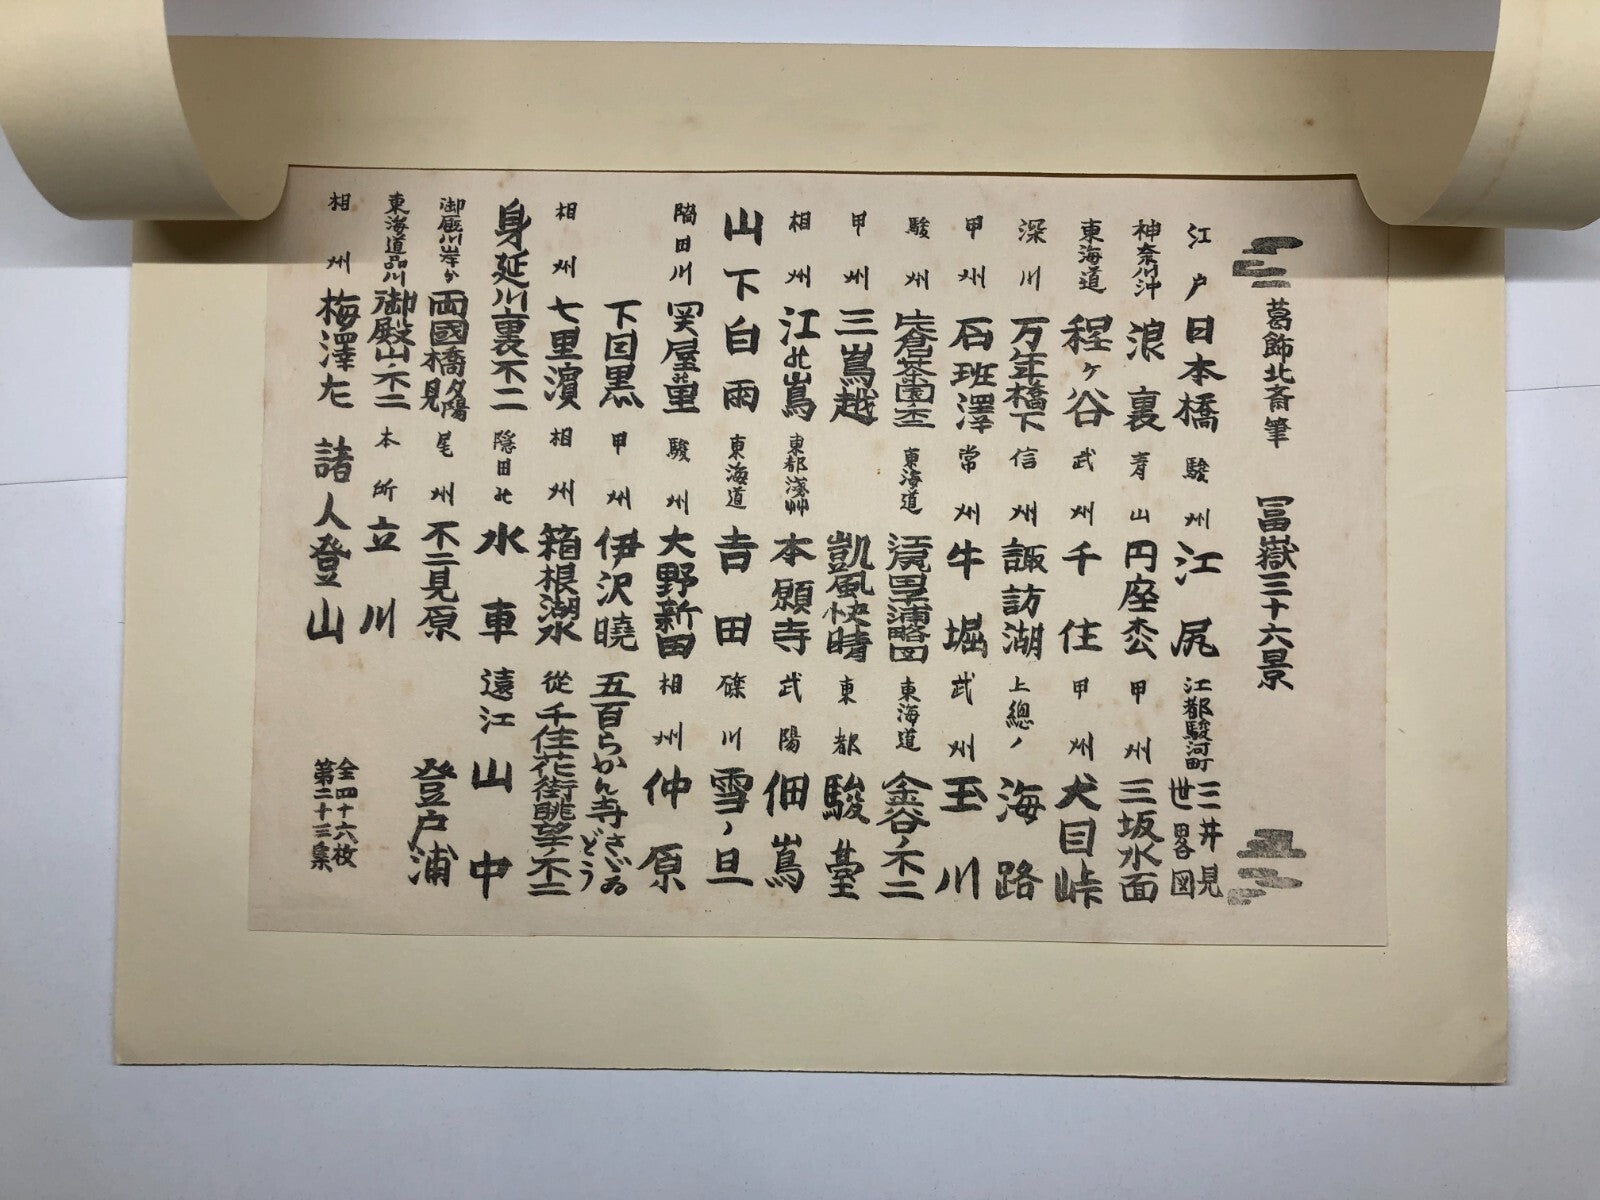 葛飾北斎筆 冨嶽三十六景
江戸日本橋 駿州江尻 江都駿河町三井見世畧図
神奈川沖浪裏 青山円座枩 甲州三坂水面
東海道程ケ谷 武州千住 甲州犬目峠
深川万年橋下 信州諏訪湖 上總ノ海路
甲州石班澤 常州牛堀 武州玉川
駿州片倉茶園ノ不二 東海道江尻田子浦略図 東海道金谷ノ不二
甲州三嶌越 凱風快晴 東都駿臺
相州江の嶌 東都淺艸本願寺 武陽佃嶌
山下白雨 東海道吉田 礫川雪ノ旦
隅田川関屋の里 駿州大野新田 相州仲原
下目黒 甲州伊沢暁 五百らかん寺さゞゐどう
相州七里濱 相州箱根湖水 従千住花街眺望ノ不二
身延川裏不二 隠田の水車 遠江山中
御厩川岸か両國橋夕陽見 尾州不二見原 登戸浦
東海道品川御殿山ノ不二 本所立川
相州梅澤左 諸人登山
全四十六枚
第二十三集